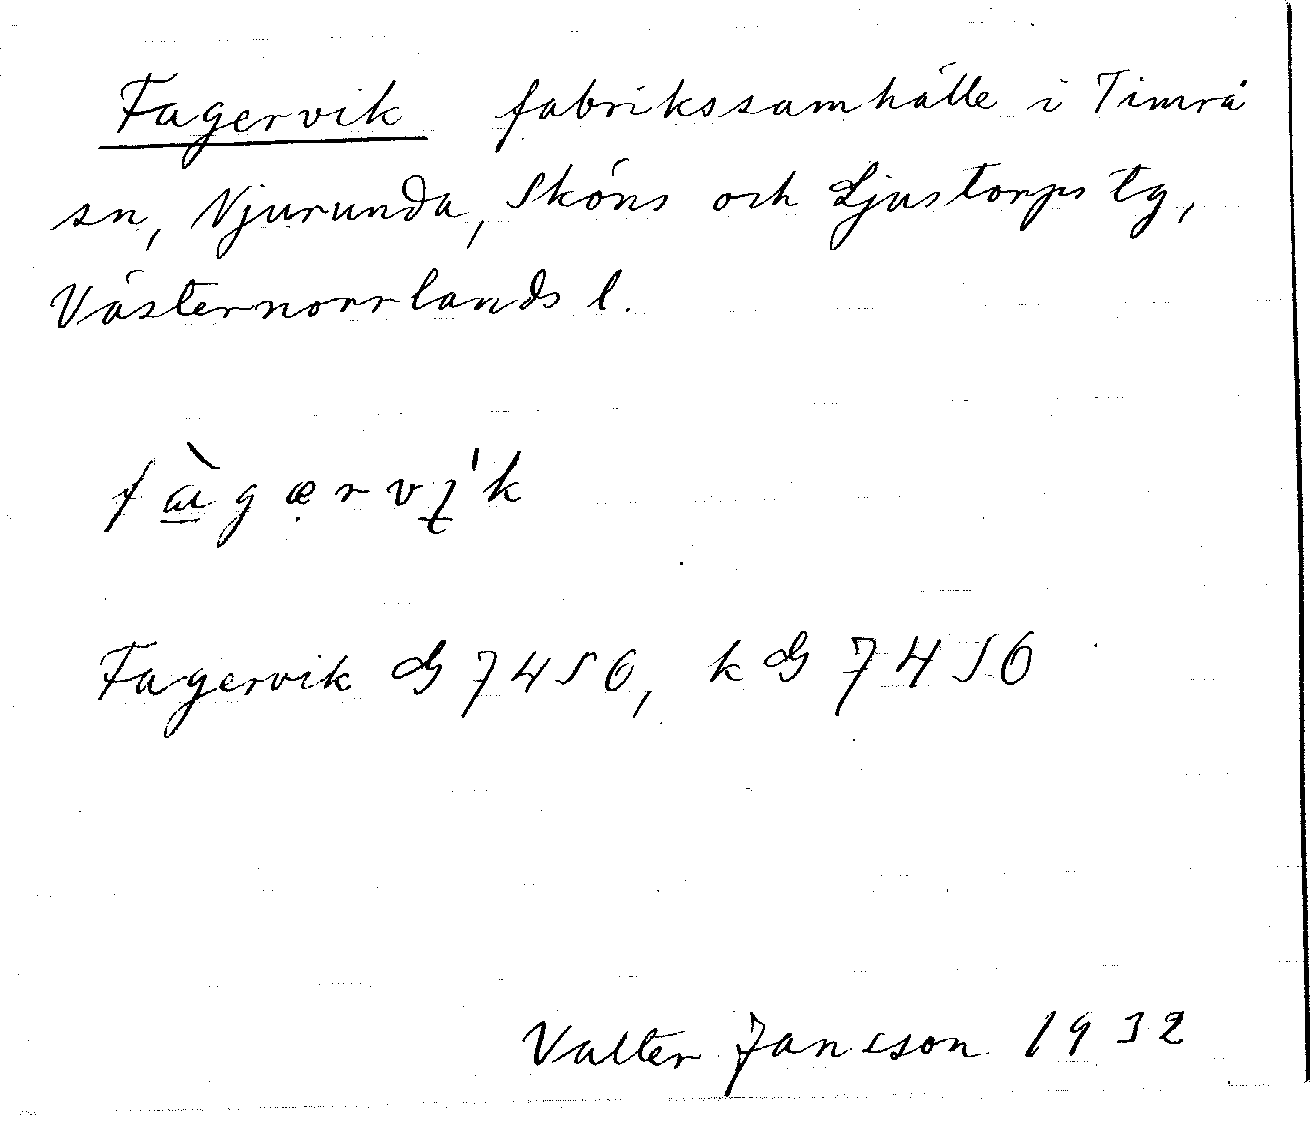 Fagervik fabrikssamhälle i Timrå
sn, Njurunda, Sköns och Ljustorps tg,
Västernorrlands l.
fàgærvi̯'k
Fagervik GS 7450, k GS 7450
Valter Jansson 1932